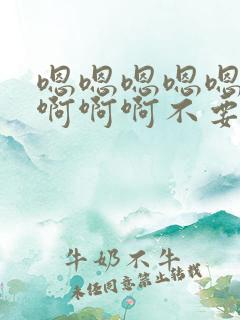 嗯嗯嗯嗯嗯
啊啊啊不要
牛奶不牛
未经同意禁止转载